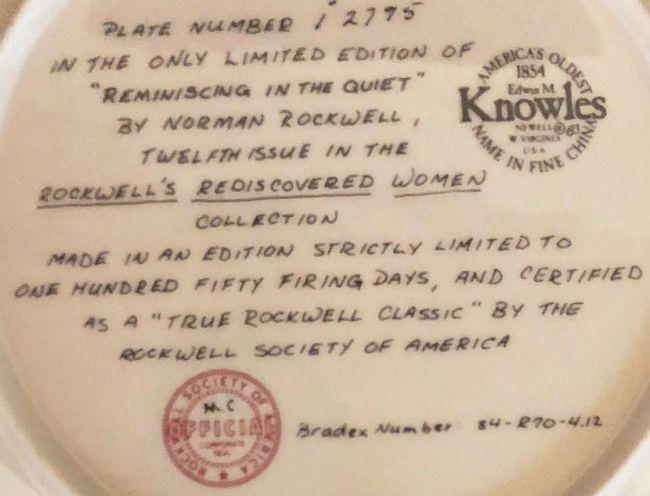 PLATE NUMBER i 2795
IN THE ONLY LIMITED EDITION OF
"REMINISCING IN THE QUIET"
BY NORMAN ROCKWELL,
TWELFTH ISSUE IN THE
ROCKWELL'S REDISCOVERED WOMEN
COLLECTION
MADE IN AN EDITION STRICTLY LIMITED TO
ONE HUNDRED FIFTY FIRING DAYS, AND CERTIFIED
AS A "TRUE ROCKWELL CLASSIC" BY THE
ROCKWELL SOCIETY OF AMERICA
AMERICA'S OLDEST
1854
Edwin M.
Knowles
NEWELL
W VIRGINIA
USA
NAME IN FINE CHINA
ROCKWELL SOCIETY OF AMERICA
M.C
OFFICIAL
CORPORATE
SEAL
Bradex Number 84-R70-4.12